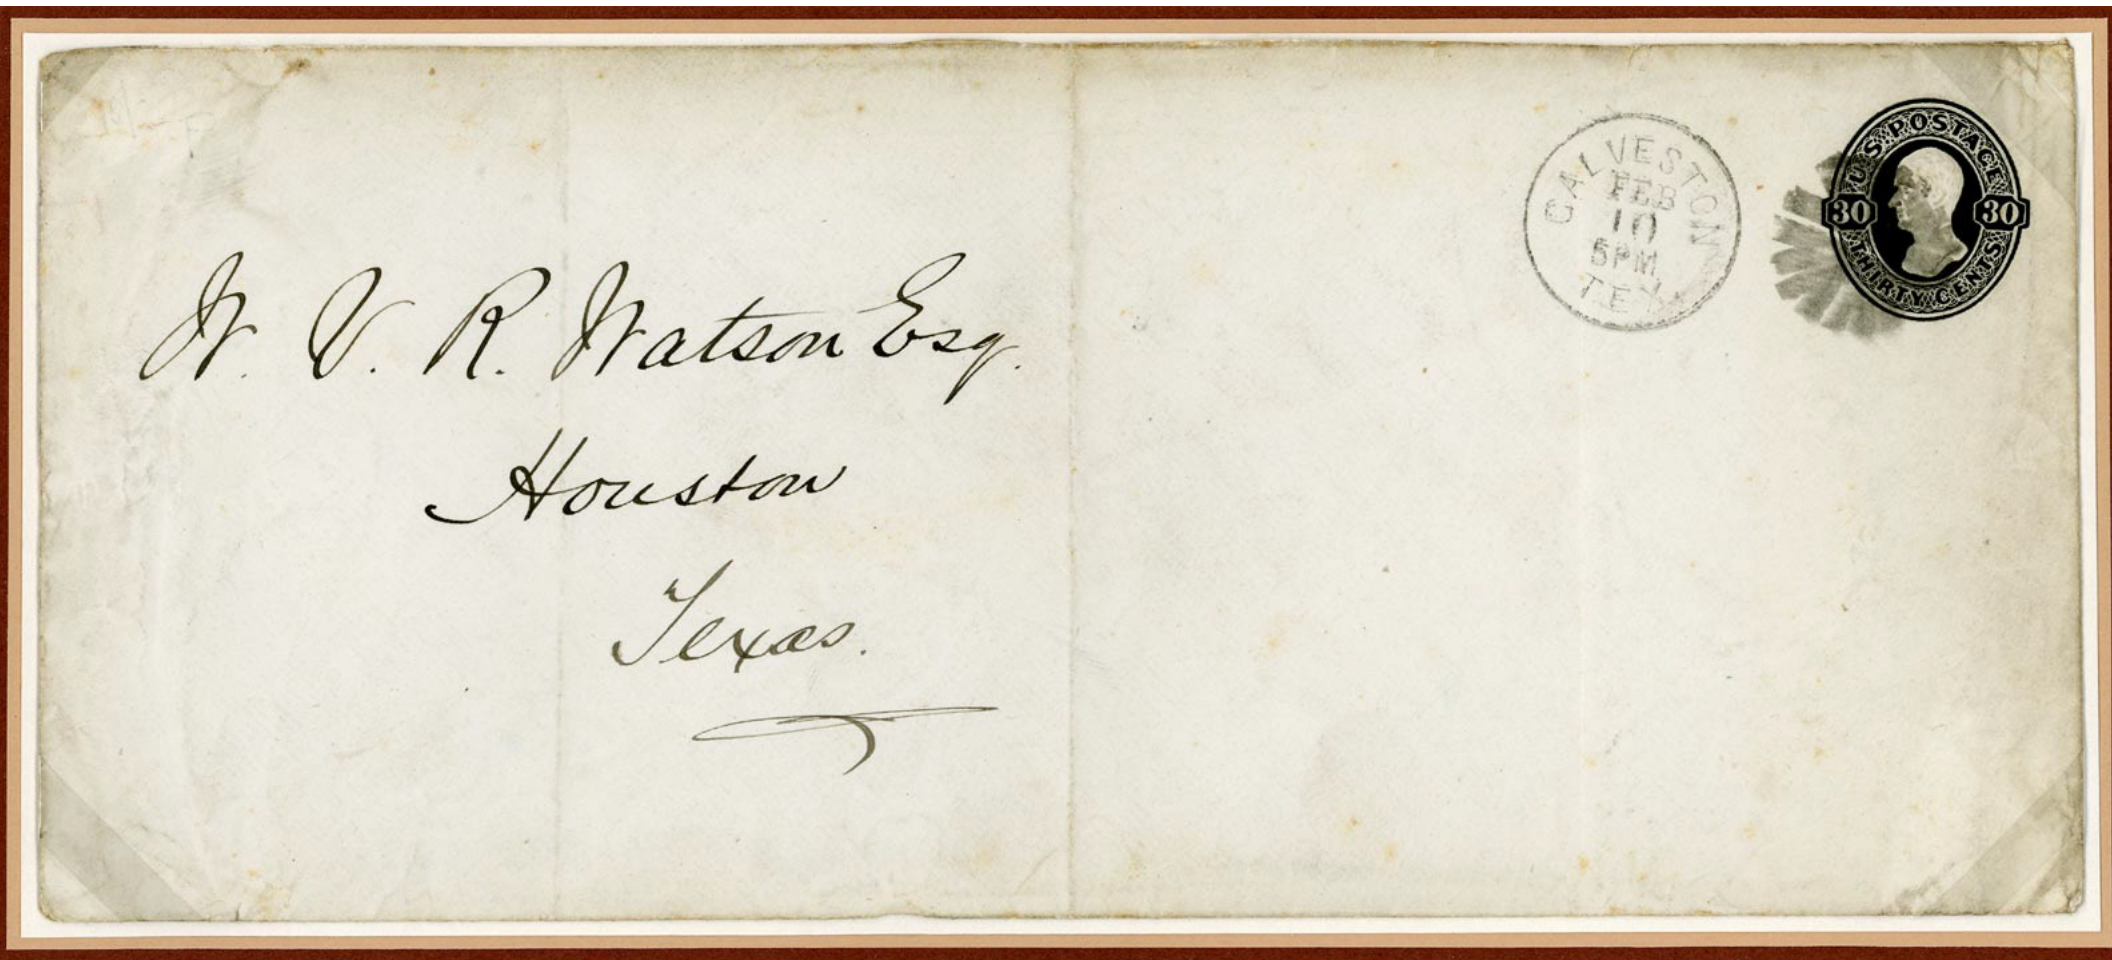 W. V. R. Watson Esq.
Houston
Texas.
GALVESTON
FEB
10
5PM
TEX
U.S POSTAGE
30 30
THIRTY CENTS